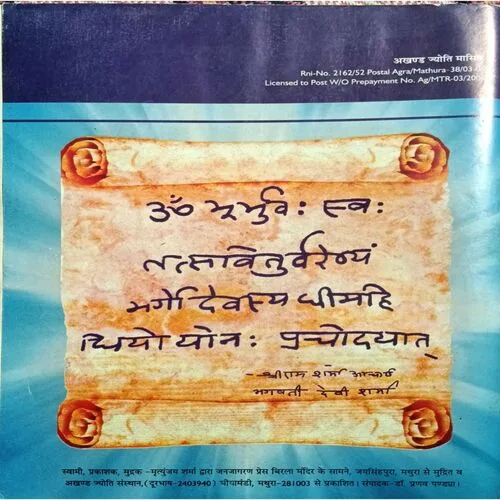 अखण्ड ज्योति मासिक
Rni-No. 2162/52 Postal Agra/Mathura 38/03-
Licensed to Post W/O Prepayment No. Ag/MTR-03/200
ॐ भूर्भुवः स्वः
तत्सवितुर्वरेण्यं
भर्गो देवस्य धीमहि
धियो योनः प्रचोदयात्
-श्रीराम शर्मा आचार्य
भगवती देवी शर्मा
स्वामी, प्रकाशक, मुद्रक -मृत्युंजय शर्मा द्वारा जनजागरण प्रेस बिरला मंदिर के सामने, जयसिंहपुरा, मथुरा से मुद्रित व
अखण्ड ज्योति संस्थान,(दूरभाष-2403940) घीयामंडी, मथुरा-281003 से प्रकाशित। संपादक-डॉ. प्रणव पण्ड्या।